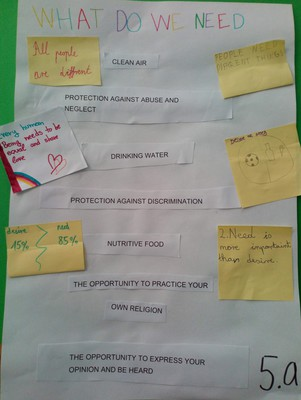 WHAT DO WE NEED
All people
are different
CLEAN AIR
PEOPLE NEED
DIFFERENT THINGS
PROTECTION AGAINST ABUSE AND
NEGLECT
Every human
Being needs to be
equal and share
love
DRINKING WATER
PROTECTION AGAINST DISCRIMINATION
desire
need
15%
85%
NUTRITIVE FOOD
2. Need is
more importaint
than desire
THE OPPORTUNITY TO PRACTICE YOUR
OWN RELIGION
THE OPPORTUNITY TO EXPRESS YOUR
OPINION AND BE HEARD
5.a